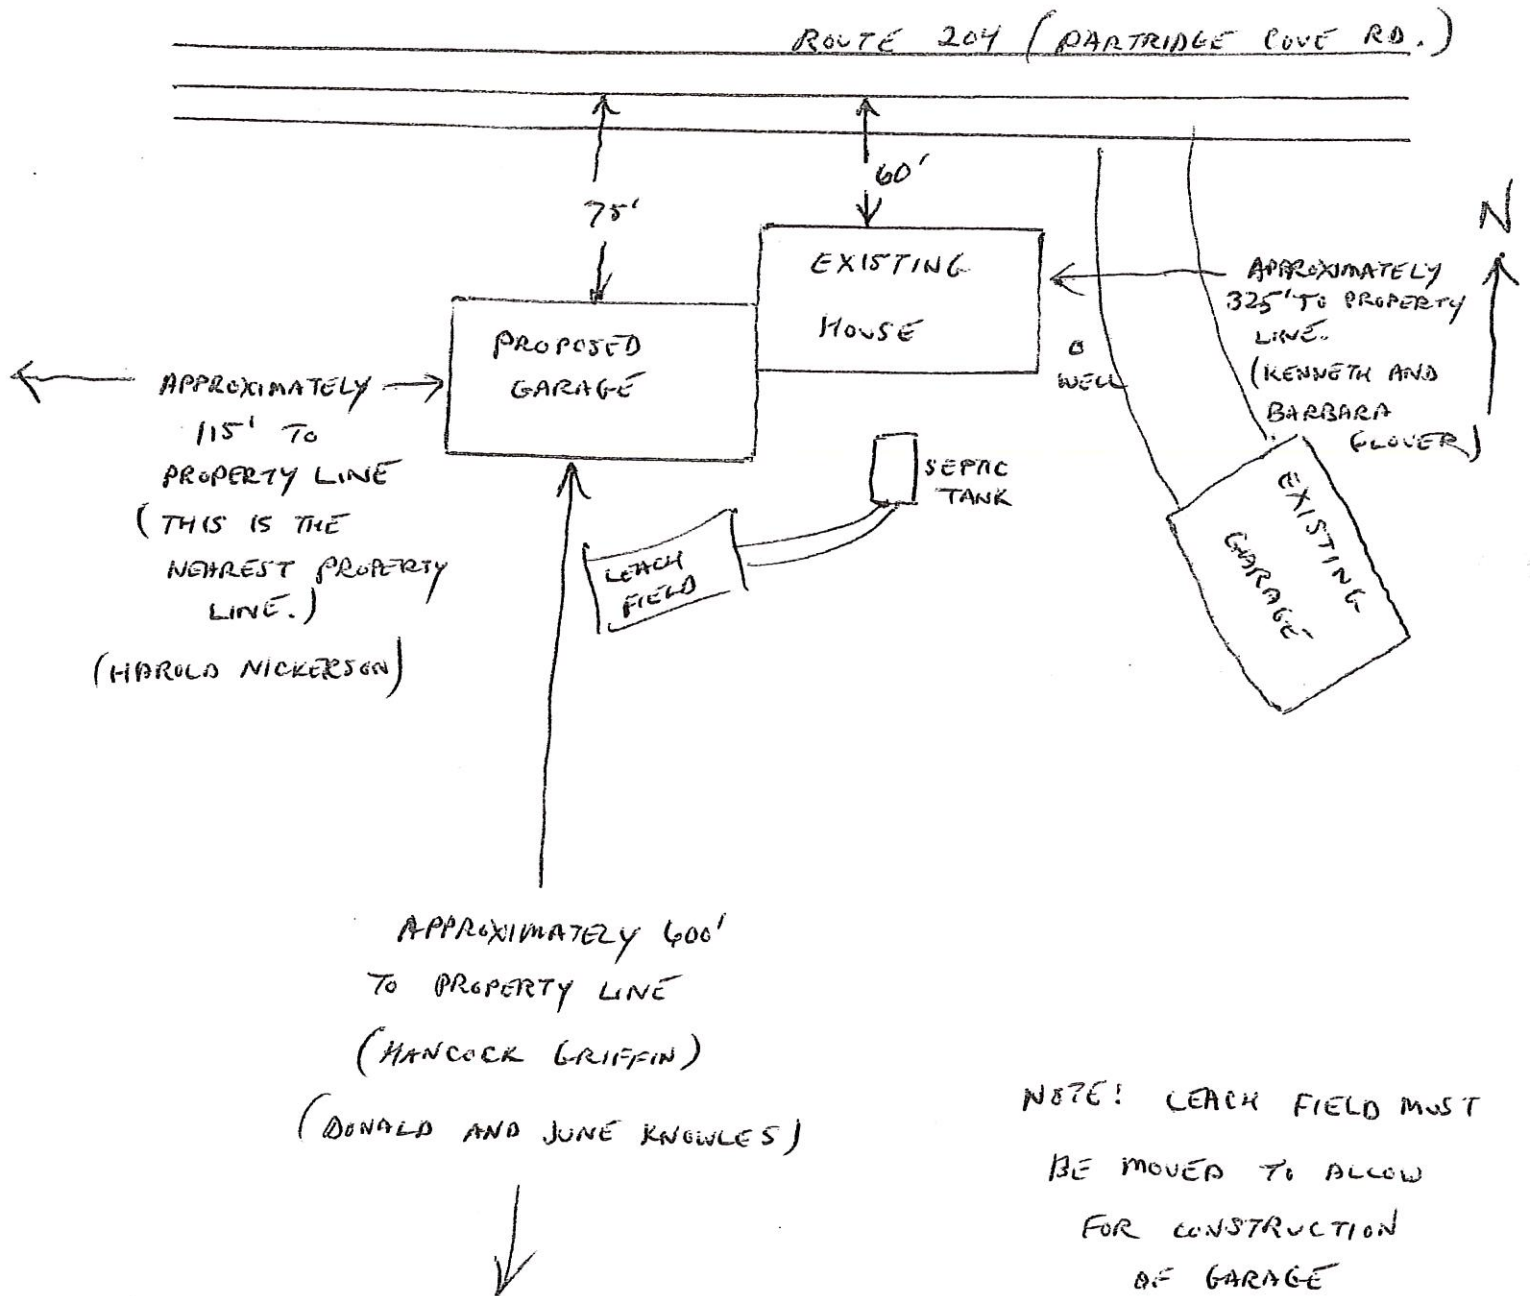 ROUTE 204 (PARTRIDGE COVE RD.)
60'
75'
N
EXISTING
HOUSE
APPROXIMATELY
325' TO PROPERTY
LINE.
(KENNETH AND
BARBARA
GLOVER)
PROPOSED
GARAGE
WELL
APPROXIMATELY
115' TO
PROPERTY LINE
(THIS IS THE
NEAREST PROPERTY
LINE.)
(HAROLD NICKERSON)
SEPTIC
TANK
LEACH
FIELD
EXISTING
GARAGE
APPROXIMATELY 600'
TO PROPERTY LINE
(HANCOCK GRIFFIN)
(DONALD AND JUNE KNOWLES)
NOTE! LEACH FIELD MUST
BE MOVED TO ALLOW
FOR CONSTRUCTION
OF GARAGE